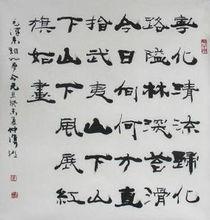 寧化清流歸化
路隘林深苔滑
今日向何方直
指武夷山下山
下山下風展紅
旗如畫
毛澤東詞如夢令元旦